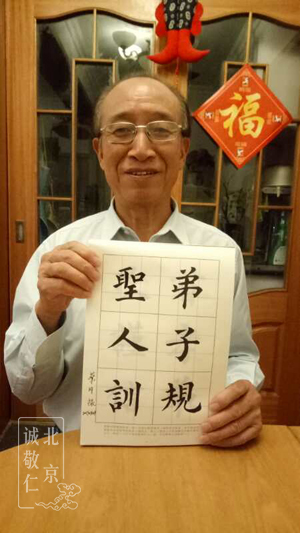 福
弟子規
聖人訓
北京
誠敬仁